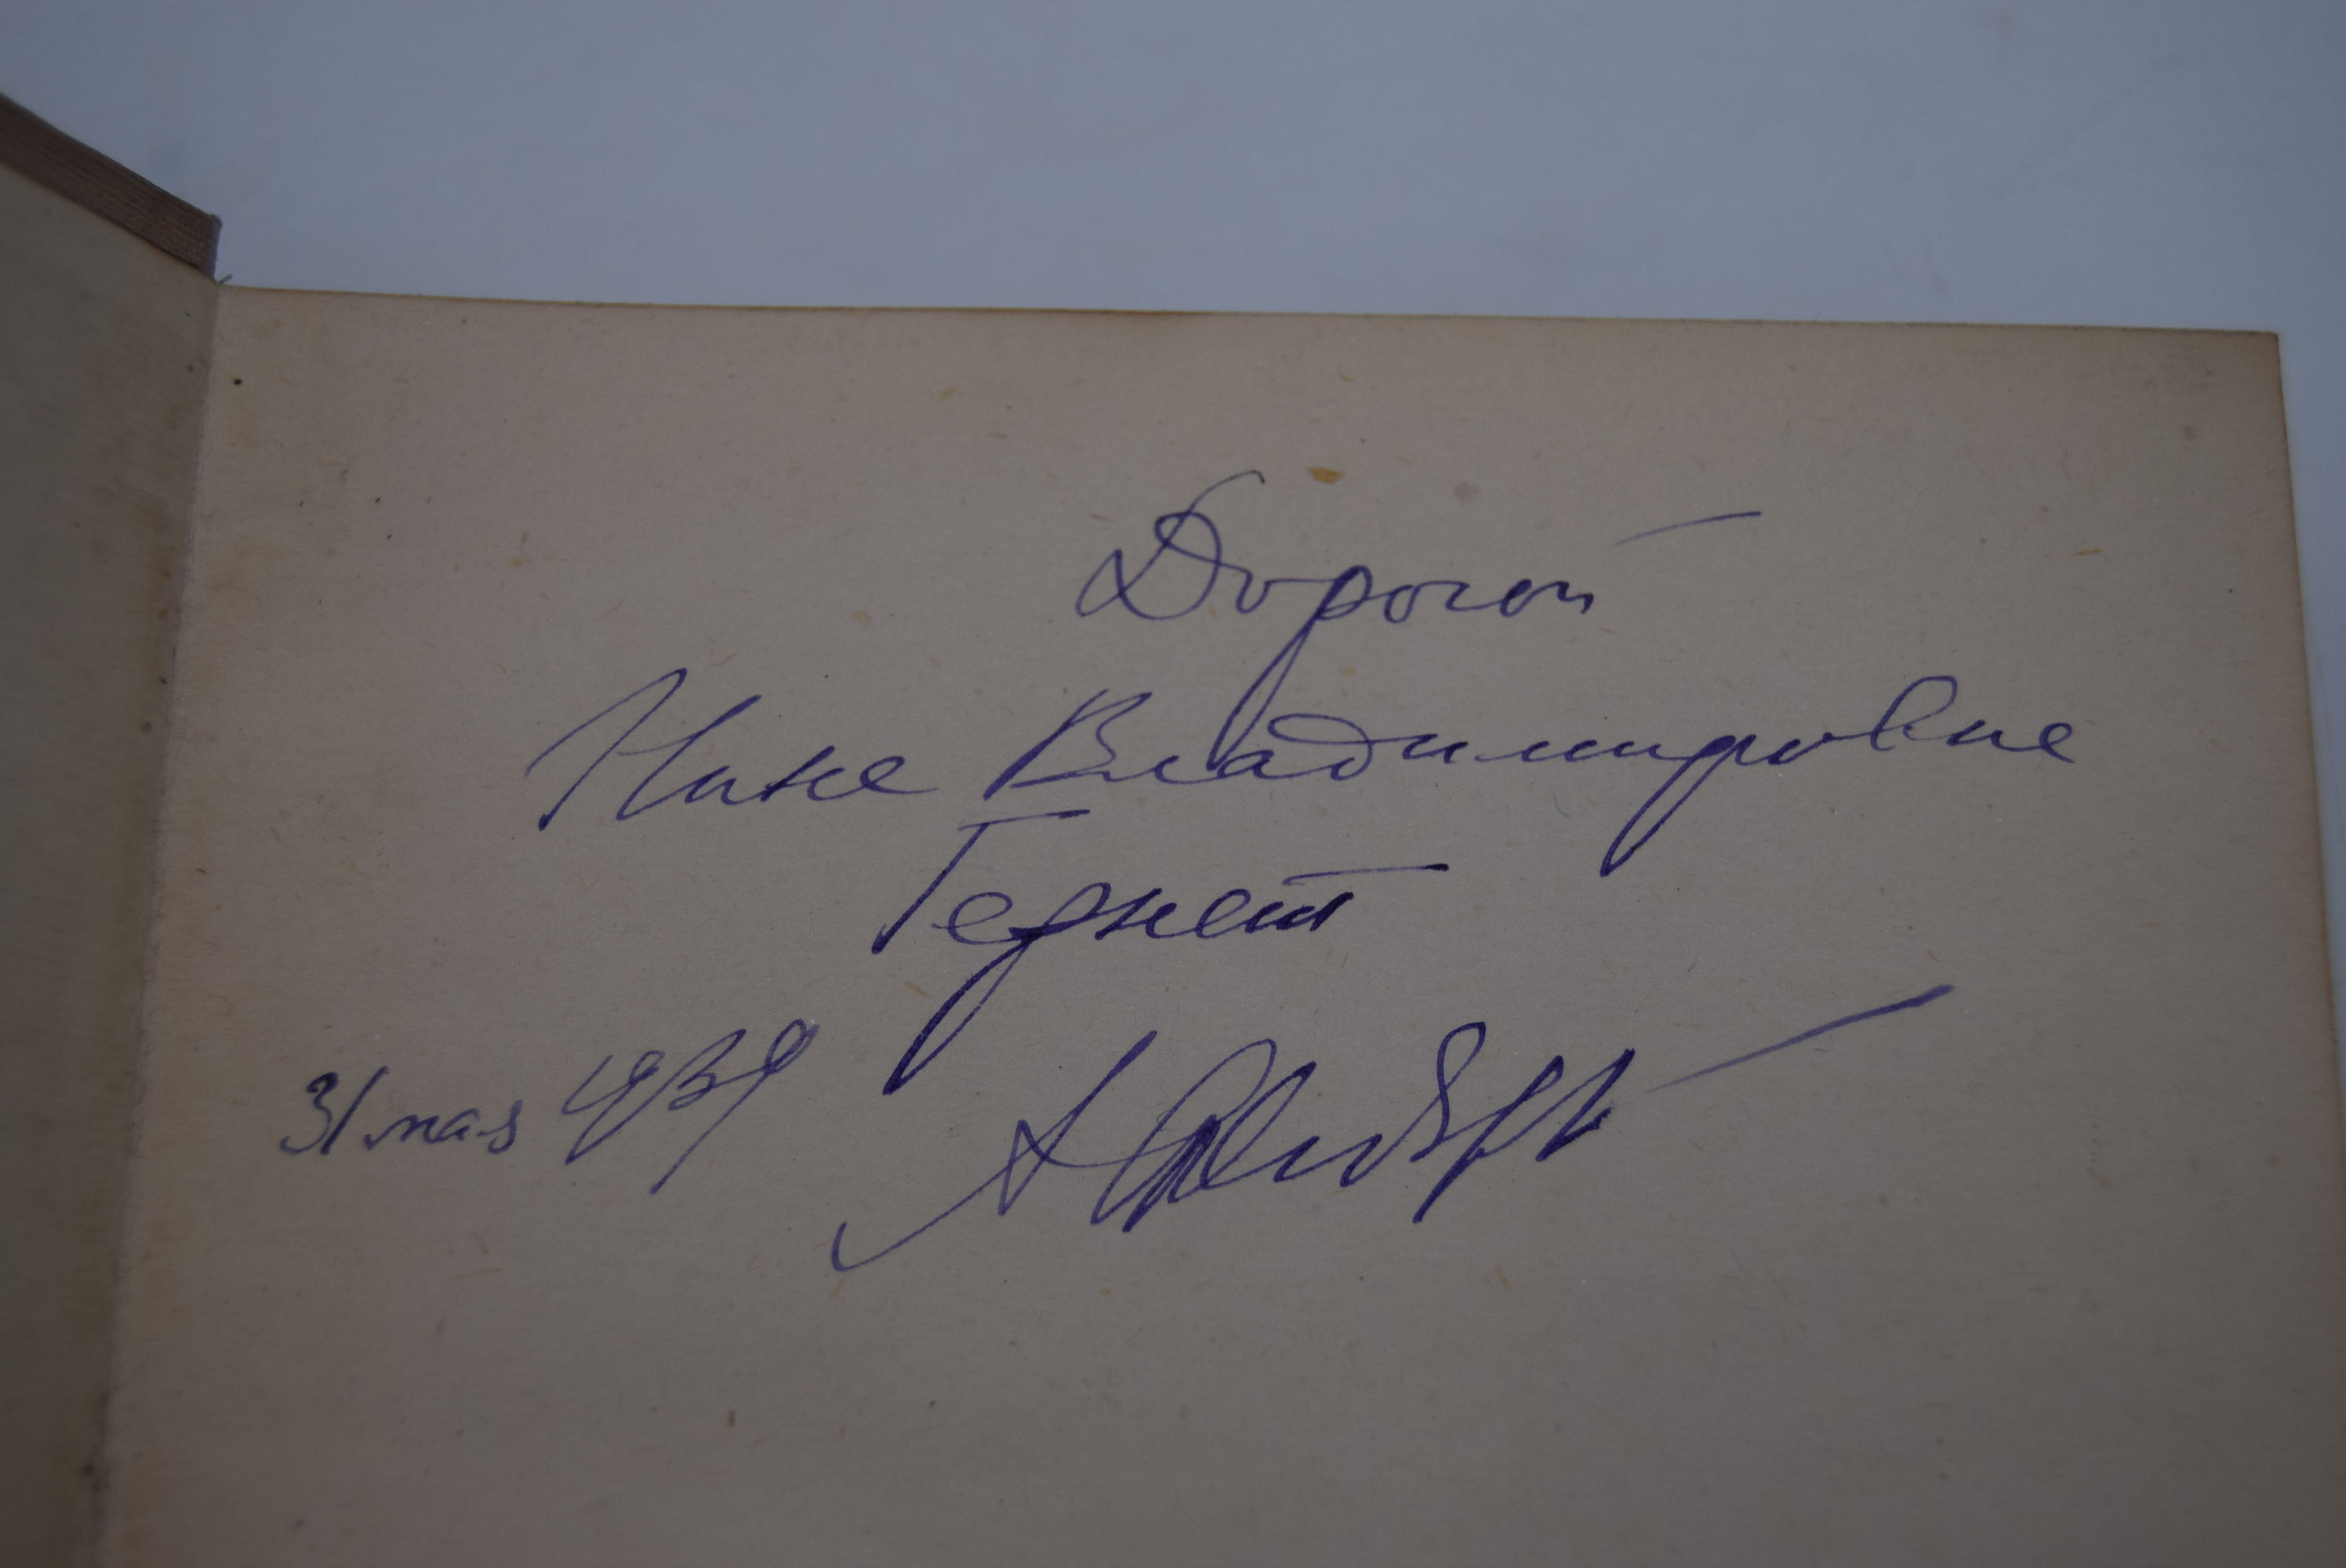 Дорогой
Нине Владимировне
Гернет
31 мая 1939